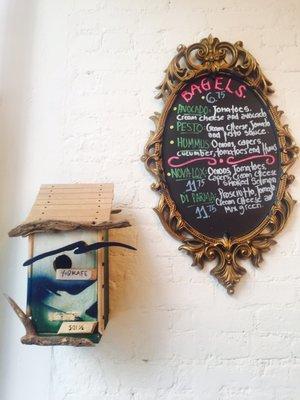 BAGELS
6.75
AVOCADO: Tomatoes,
Cream cheese and avocado
PESTO: Cream Cheese, Tomato
and pesto sauce.
HUMMUS: Onions, capers,
cucumber, tomatoes and
NOVA LOX: Onions, Tomatoes,
Capers, Cream Cheese
11.75 Smoked Salmon
DI PARMA: Proscitto, Tomato
Cream Cheese and
11.75 Mix green.